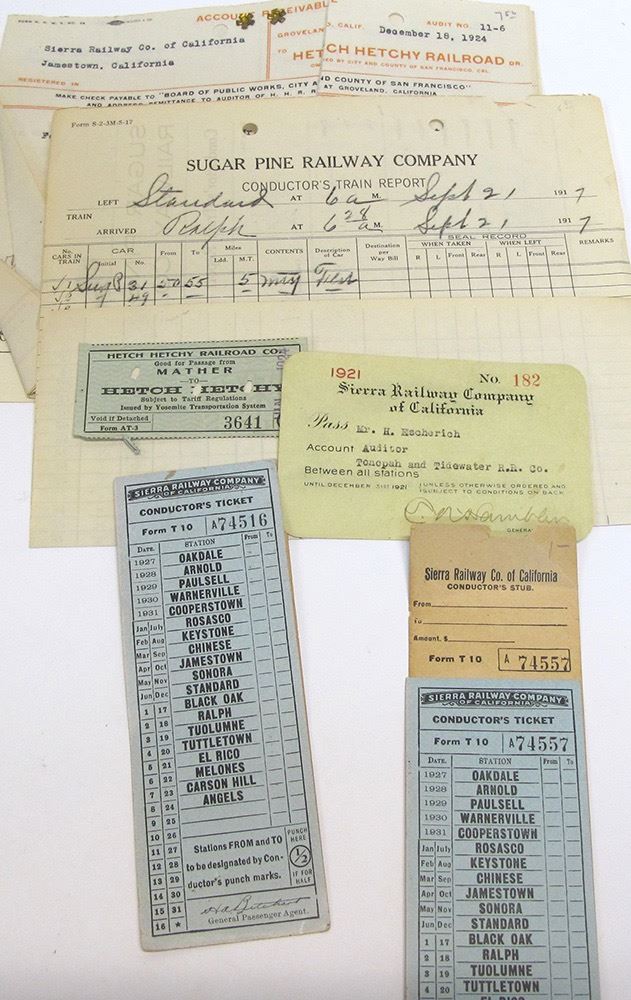 ACCOUNTS RECEIVABLE
Sierra Railway Co. of California
Jamestown, California
REGISTERED IN
MAKE CHECK PAYABLE TO "BOARD OF PUBLIC WORKS, CITY A
AND ADDRESS REMITTANCE TO AUDITOR OF H. H. R. R
7 50
AUDIT NO. 11-6
GROVELAND, CALIF. December 18, 1924
TO HETCH HETCHY RAILROAD DR.
OWNED BY CITY AND COUNTY OF SAN FRANCISCO, CAL.
ND COUNTY OF SAN FRANCISCO"
AT GROVELAND, CALIFORNIA
Form S-2-3M-5-17
SUGAR PINE RAILWAY COMPANY
CONDUCTOR'S TRAIN REPORT
TRAIN
LEFT Standard AT 6 a M. Sept 21 1917
ARRIVED Ralph AT 6 28 a M. Sept 21 1917
No. CARS IN TRAIN
CAR
Initial No.
From To
Miles
Ldd. M.T.
CONTENTS
Description of Car
Destination per Way Bill
SEAL RECORD
WHEN TAKEN WHEN LEFT
R L Front Rear R L Front Rear
REMARKS
1 Sug P 31 50 55 5 Flat
2 49
HETCH HETCHY RAILROAD CO.
Good for Passage from
MATHER
—TO—
HETCH HETCHY
Subject to Tariff Regulations
Issued by Yosemite Transportation System
Void if Detached
Form AT-3
3641
1921 No. 182
Sierra Railway Company
of California
Pass Mr. H. Escherich
Account Auditor
Tonopah and Tidewater R.R. Co.
Between all stations
UNTIL DECEMBER 31ST 1921 UNLESS OTHERWISE ORDERED AND
SUBJECT TO CONDITIONS ON BACK
GENERA
SIERRA RAILWAY COMPANY
OF CALIFORNIA
CONDUCTOR'S TICKET
Form T 10 A74516
DATE. STATION From To
1927 OAKDALE
1928 ARNOLD
1929 PAULSELL
1930 WARNERVILLE
1931 COOPERSTOWN
Jan July ROSASCO
Feb Aug KEYSTONE
Mar Sep CHINESE
Apr Oct JAMESTOWN
May Nov SONORA
Jun Dec STANDARD
1 17 BLACK OAK
2 18 RALPH
3 19 TUOLUMNE
4 20 TUTTLETOWN
5 21 EL RICO
6 22 MELONES
7 23 CARSON HILL
8 24 ANGELS
9 25
10 26
11 27
12 28
13 29
14 30
15 31
16 *
Stations FROM and TO
to be designated by Con-
ductor's punch marks.
PUNCH HERE
1/2
IF FOR HALF
General Passenger Agent.
1-
Sierra Railway Co. of California
CONDUCTOR'S STUB.
From
To
Amount. $
Form T 10 A 74557
SIERRA RAILWAY COMPANY
OF CALIFORNIA
CONDUCTOR'S TICKET
Form T 10 A74557
DATE. STATION From To
1927 OAKDALE
1928 ARNOLD
1929 PAULSELL
1930 WARNERVILLE
1931 COOPERSTOWN
Jan July ROSASCO
Feb Aug KEYSTONE
Mar Sep CHINESE
Apr Oct JAMESTOWN
May Nov SONORA
Jun Dec STANDARD
1 17 BLACK OAK
2 18 RALPH
3 19 TUOLUMNE
4 20 TUTTLETOWN
EL RICO